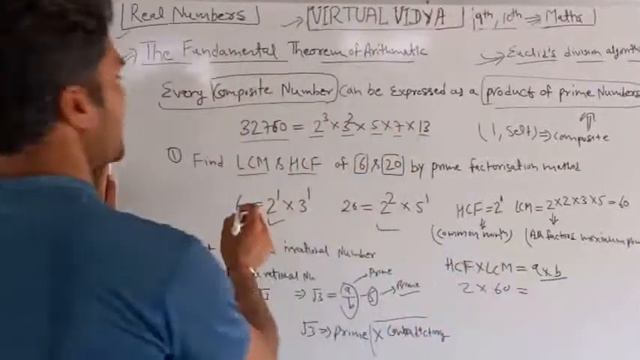 Real Numbers → VIRTUAL VIDYA 9th, 10th ⇒ Maths
→ The Fundamental Theorem of Arithmatic → Euclid's division algorithm
Every Composite Number Can be Expressed as a product of prime Numbers
32760 = 2³×3²×5×7×13 (1, Self) ⇒ composite
① Find LCM & HCF of 6 & 20 by prime factorisation method
6 = 2¹ × 3¹ 20 = 2² × 5¹ HCF = 2¹ LCM = 2×2×3×5 = 60
(Common min) (All factors maximum
irrational Number
HCF × LCM = a×b
rational Nu Prime
√3 ⇒ √3 = a/b Prime 2 × 60 =
√3 ⇒ Prime × Contradicting